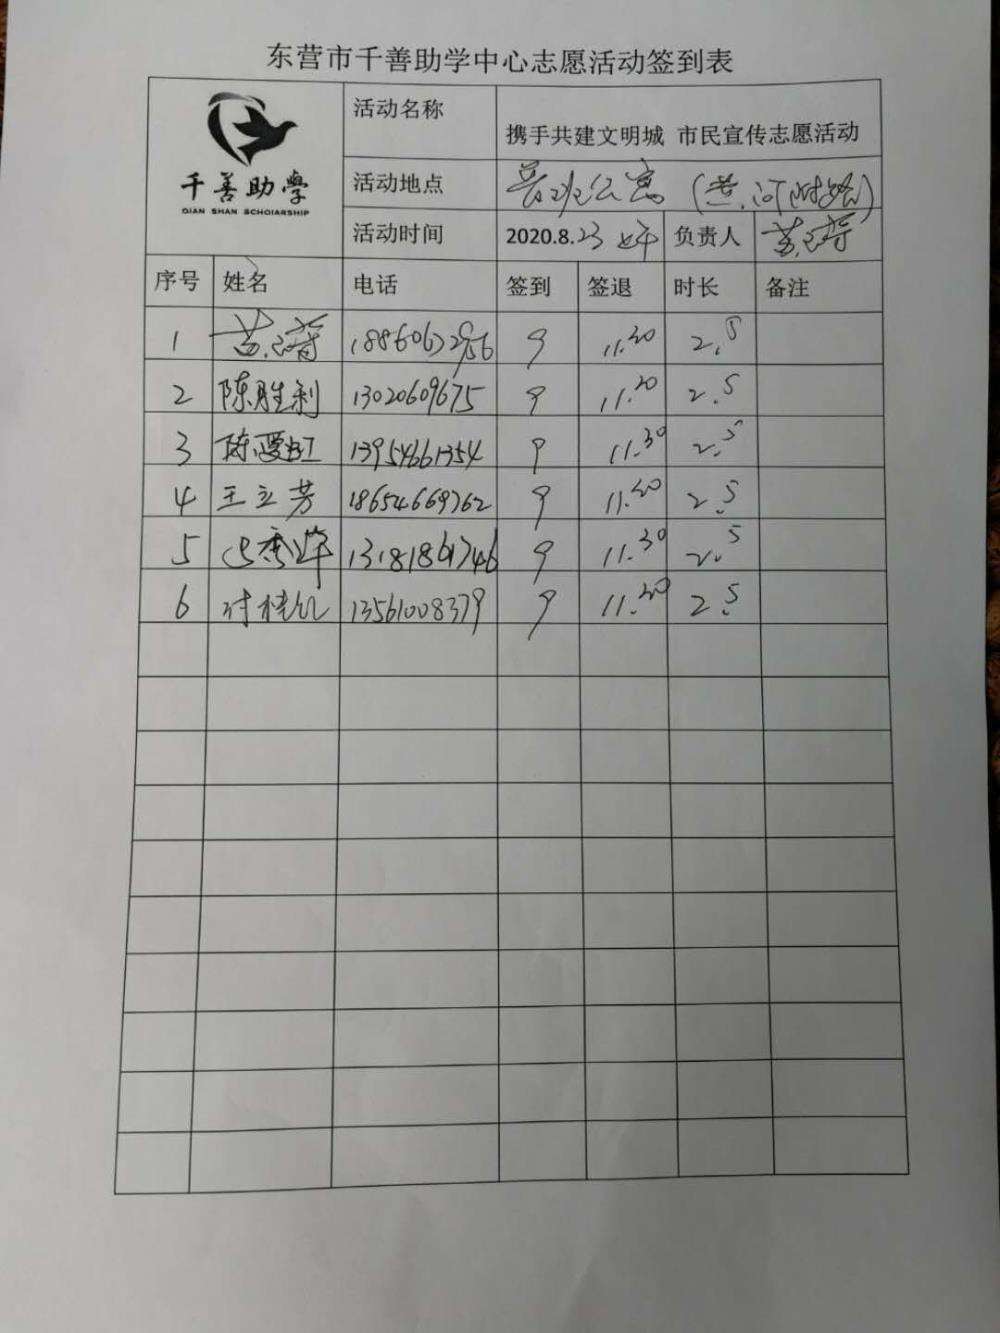 东营市千善助学中心志愿活动签到表
千善助學
QIAN SHAN SCHOIARSHIP
活动名称 携手共建文明城 市民宣传志愿活动
活动地点 公寓
活动时间 2020.8.23 上午 负责人
序号 姓名 电话 签到 签退 时长 备注
1 9 11.30 2.5
2 陈胜利 13020609675 9 11.30 2.5
3 陈爱红 13954661354 9 11.30 2.5
4 王立芳 18654669762 9 11.30 2.5
5 13181861746 9 11.30 2.5
6 13561008379 9 11.30 2.5